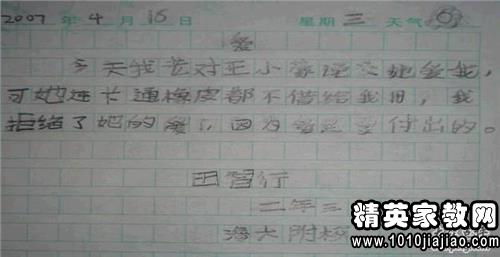 2007 年 4 月 16 日 星期 三 天气
爱
今天我 对王小 她爱我，
可她连卡通橡皮都不借给我用，我
拒绝了她的爱，因为爱是要付出的。
田智行
二年三
海大附校
精英家教网
www.1010jiajiao.com